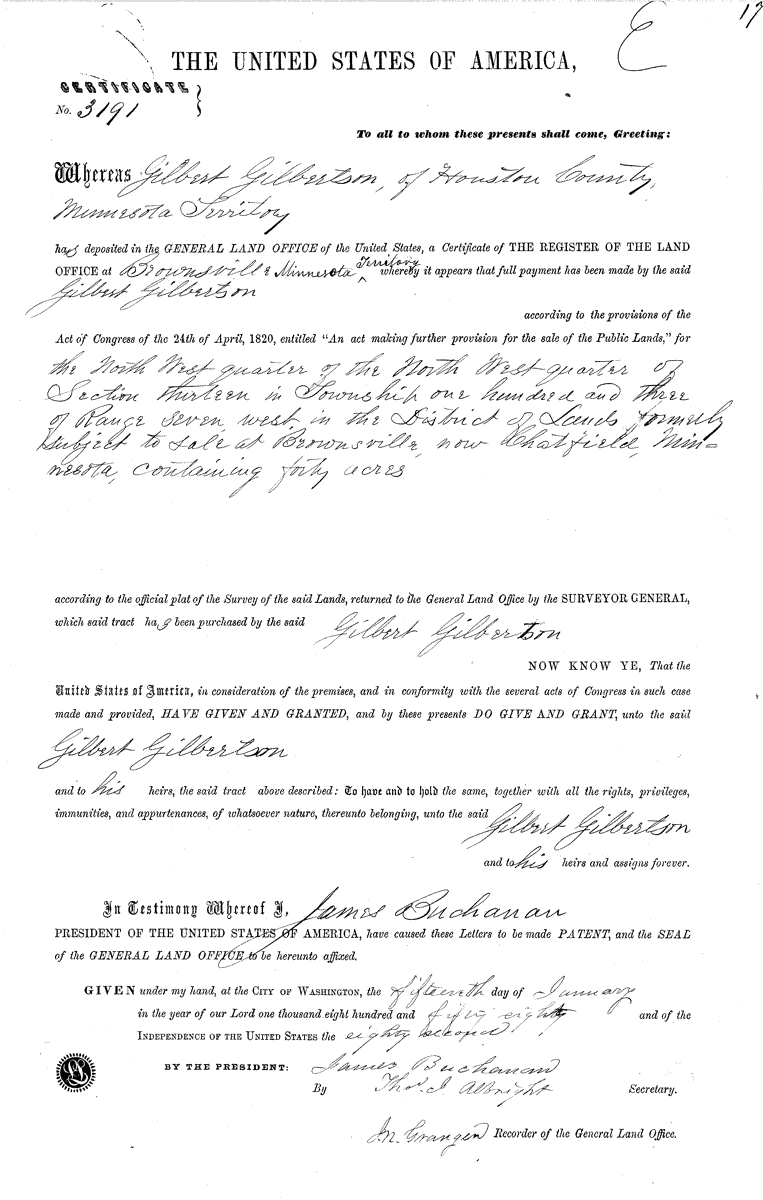 17
E
THE UNITED STATES OF AMERICA,
CERTIFICATE
No. 3191
To all to whom these presents shall come, Greeting:
Whereas Gilbert Gilbertson, of Houston County,
Minnesota Territory
has deposited in the GENERAL LAND OFFICE of the United States, a Certificate of THE REGISTER OF THE LAND
OFFICE at Brownsville Minnesota Territory whereby it appears that full payment has been made by the said
Gilbert Gilbertson
according to the provisions of the
Act of Congress of the 24th of April, 1820, entitled "An act making further provision for the sale of the Public Lands," for
the North West quarter of the North West quarter of
Section thirteen in Township one hundred and three
of Range seven west, in the District of Lands formerly
subject to sale at Brownsville, now Chatfield, Min=
nesota, containing forty acres
according to the official plat of the Survey of the said Lands, returned to the General Land Office by the SURVEYOR GENERAL,
which said tract has been purchased by the said Gilbert Gilbertson
NOW KNOW YE, That the
United States of America, in consideration of the premises, and in conformity with the several acts of Congress in such case
made and provided, HAVE GIVEN AND GRANTED, and by these presents DO GIVE AND GRANT, unto the said
Gilbert Gilbertson
and to his heirs, the said tract above described: To have and to hold the same, together with all the rights, privileges,
immunities, and appurtenances, of whatsoever nature, thereunto belonging, unto the said Gilbert Gilbertson
and to his heirs and assigns forever.
In Testimony Whereof I, James Buchanan
PRESIDENT OF THE UNITED STATES OF AMERICA, have caused these Letters to be made PATENT, and the SEAL
of the GENERAL LAND OFFICE to be hereunto affixed.
GIVEN under my hand, at the CITY OF WASHINGTON, the fifteenth day of January
in the year of our Lord one thousand eight hundred and fifty eight and of the
INDEPENDENCE OF THE UNITED STATES the eighty second
BY THE PRESIDENT: James Buchanan
By Thos. J. Albright Secretary.
J.N. Granger Recorder of the General Land Office.